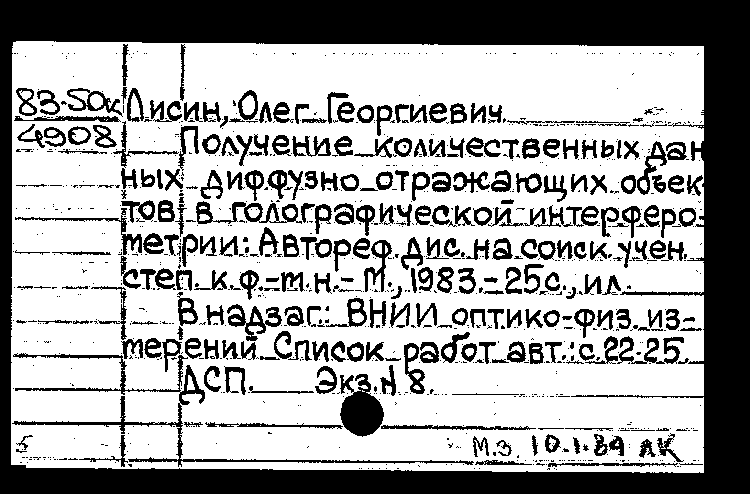 83-50к Лисин, Олег Георгиевич
4908 Получение количественных дан
ных диффузно отражающих объек-
тов в голографической интерферо-
метрии: Автореф. дис. на соиск. учен.
степ. к.ф.-т.н.- М., 1983.- 25с., ил.
В надзаг.: ВНИИ оптико-физ. из-
мерений. Список работ авт.: с.22-25.
ДСП. Экз.N 8.
5 М.З. 10.1.84 ЛК